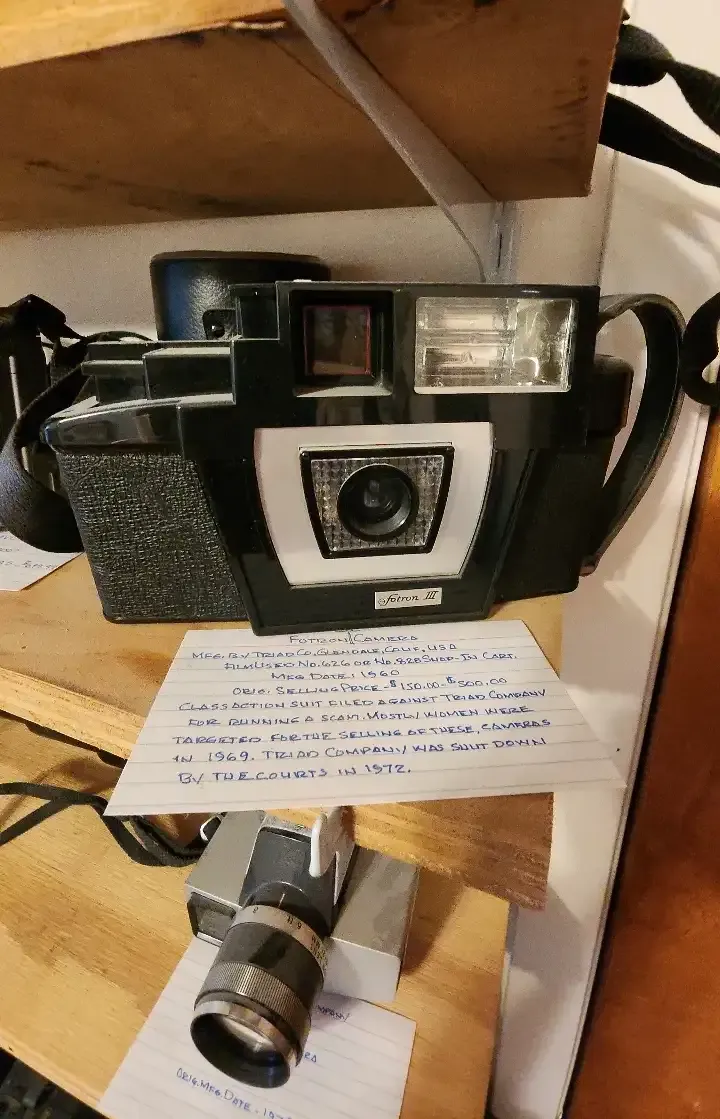 fotron III
FOTRON CAMERA
MFG. BY TRIAD CO. GLENDALE, CALIF., USA
FILM USED NO. 626 OR NO. 828 SNAP-IN CART.
MFG DATE: 1960
ORIG. SELLING PRICE - $150.00 - $500.00
CLASS ACTION SUIT FILED AGAINST TRIAD COMPANY
FOR RUNNING A SCAM. MOSTLY WOMEN WERE
TARGETED FOR THE SELLING OF THESE, CAMERAS
IN 1969. TRIAD COMPANY WAS SHUT DOWN
BY THE COURTS IN 1972.
ORIG. MFG. DATE -